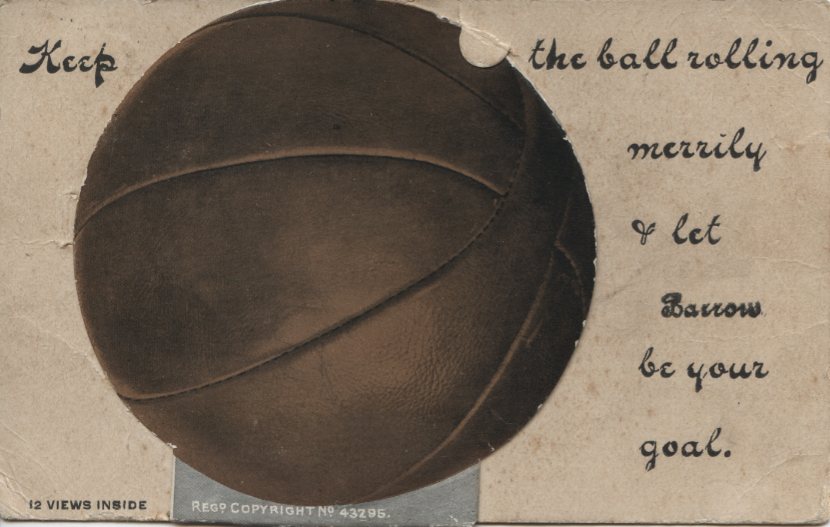 Keep the ball rolling
merrily
& let
Barrow
be your
goal.
12 VIEWS INSIDE
REGD COPYRIGHT No 43295.